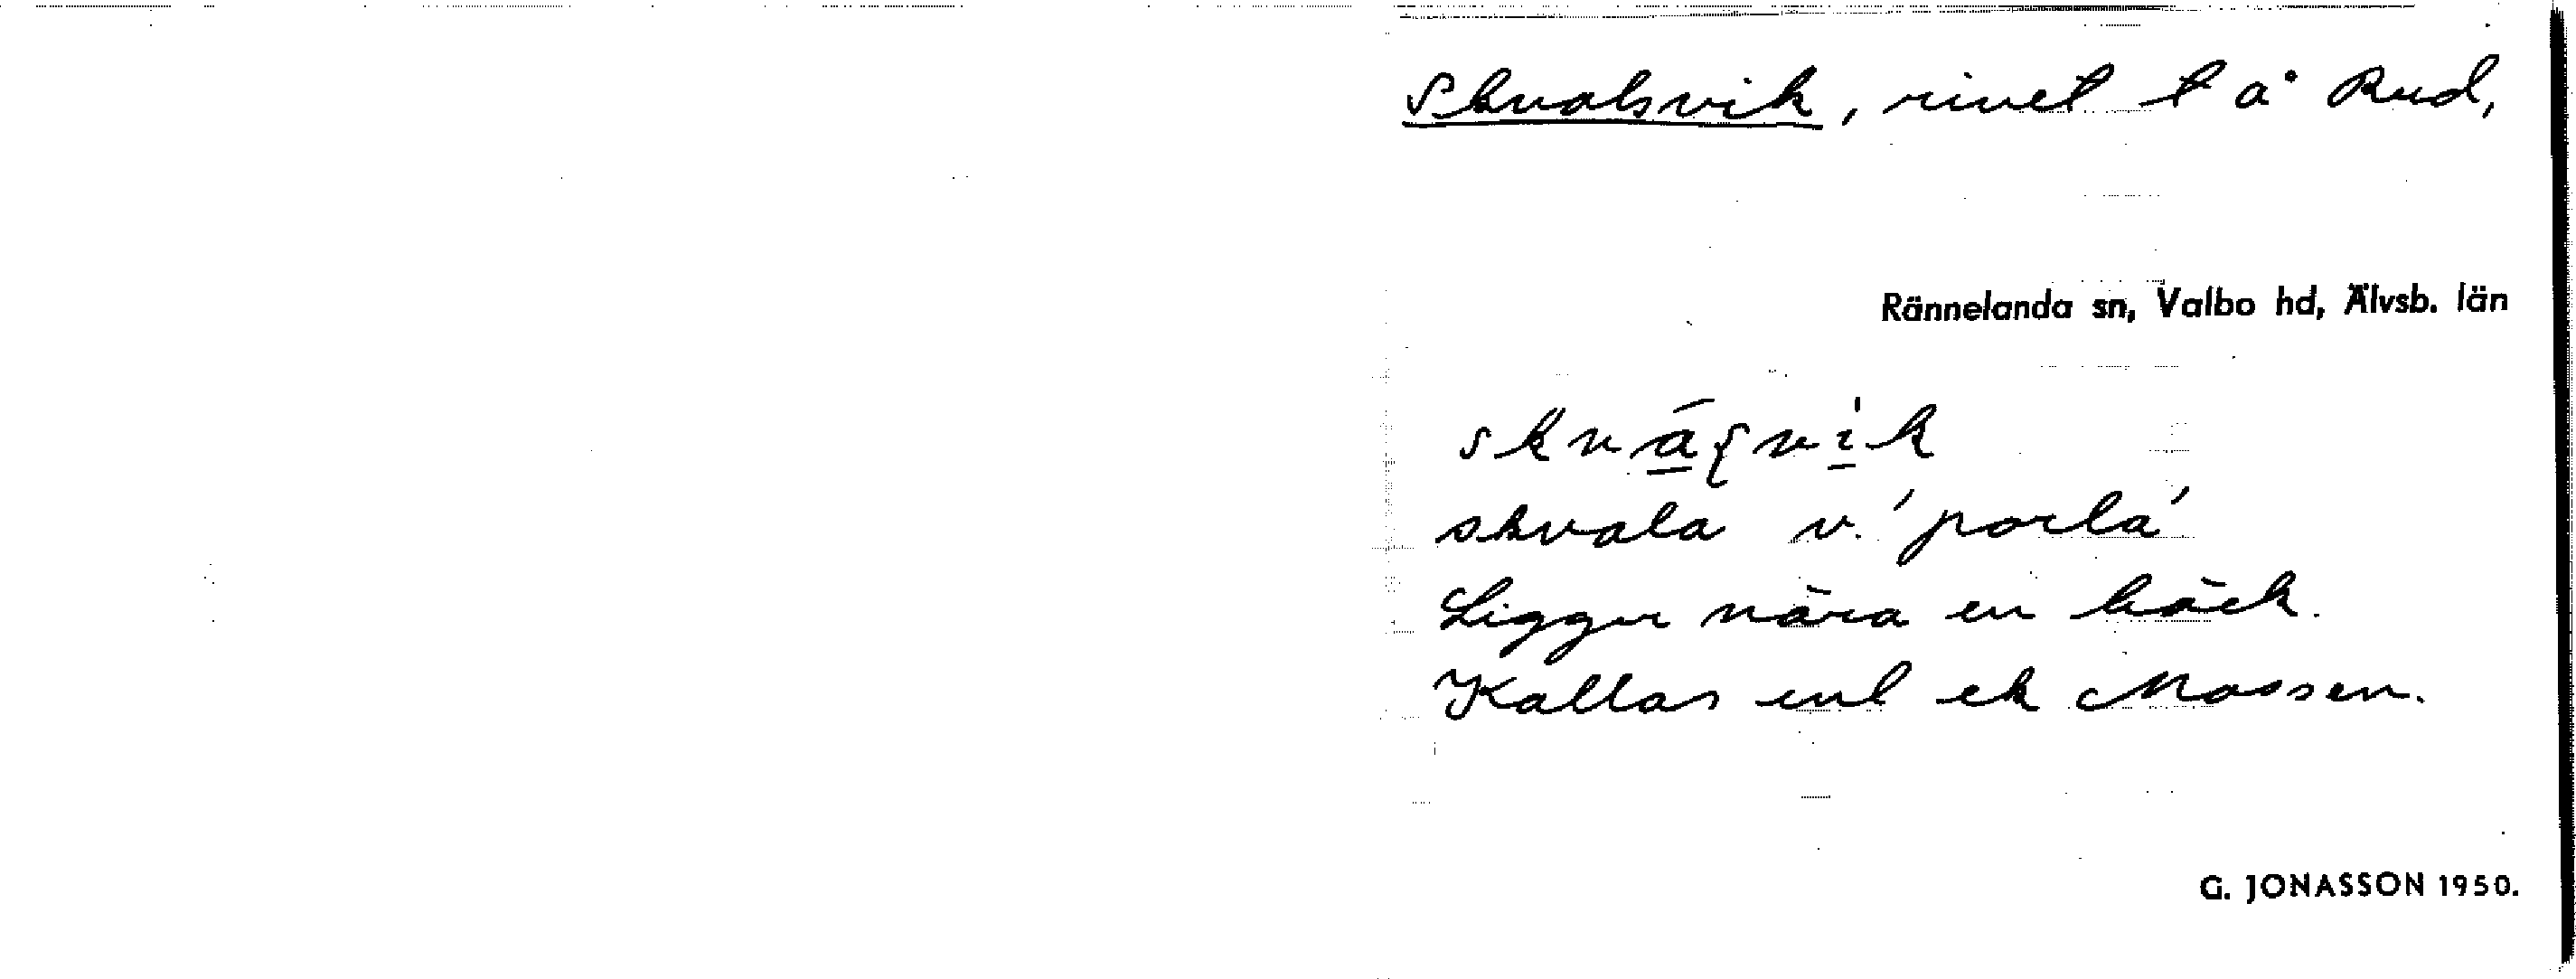 Skvalsvik, rivet t å Rud,
Rännelanda sn, Valbo hd, Älvsb. län
skvala v. 'porla'
Ligger nära en bäck.
Kallas enl ek Mossen.
G. JONASSON 1950.